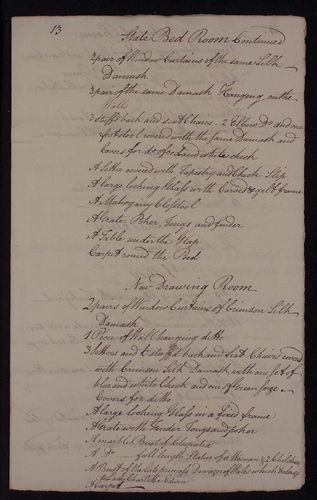 13
State Bed Room Continued
2 pair of Window Curtains of the same Silk
Damask
3 pair of the same Damask Hanging on the
Walls
stuff'd back and seat Chairs 2 Elbow Do. and one
footstool covered with the same Damask and
Covers for do. of red and white check
A Settee covered with Tapestry and Check Slip
A large looking Glass with Carved & gilt frame
A Mahogany Closestool
A Grate, Poker, Tongs and fender
A Table under the Glass
Carpet round the Bed
New Drawing Room
2 pairs of Window Curtains of Crimson Silk
Damask
1 Piece of Wall hanging ditto
3 Settees and stuff'd back and Seat Chairs covered
with Crimson Silk Damask, with one set of
blue and white Check and one of Green Serge
Covers for ditto
A large looking Glass in a fixed frame
A Grate with Fender Tongs and poker
A marble Bust of Cleopatra
A Do. full length Statue of a Woman & 2 Children
A Bust of the late princess Dowager of Wales which belongs
to Lady Charlotte
A Carpet